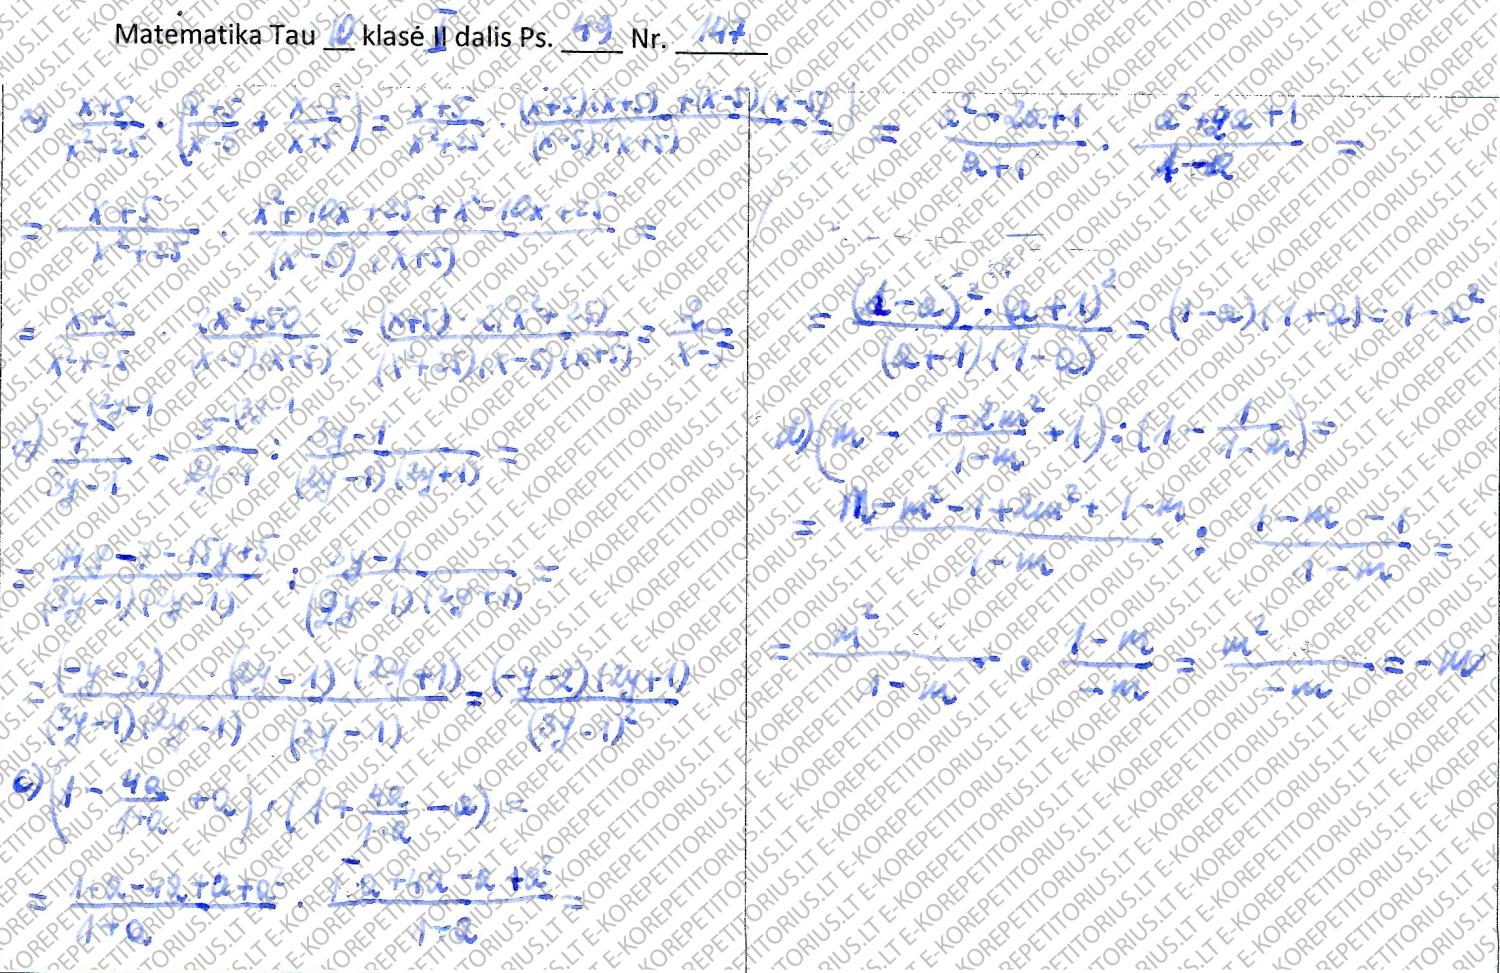 Matematika Tau 10 klasė II dalis Ps. 49 Nr. 147
a) (x+5)/(x²+25) · ((x+5)/(x-5) + (x-5)/(x+5)) = (x+5)/(x²+25) · ((x+5)(x+5)+(x-5)(x-5))/((x-5)(x+5))
= (x+5)/(x²+25) · (x²+10x+25+x²-10x+25)/((x-5)(x+5)) =
= (x+5)/(x²+25) · (2x²+50)/((x-5)(x+5)) = ((x+5)·2(x²+25))/((x²+25)(x-5)(x+5)) = 2/(x-5)
(7^(2y-1)/(3y-1) - 5^(3y-1)/(2y-1)) : (3y-1)/((2y-1)(2y+1)) =
= (14y-7-15y+5)/((3y-1)(2y-1)) : (3y-1)/((2y-1)(2y+1)) =
= (-y-2)/((3y-1)(2y-1)) · ((2y-1)(2y+1))/(3y-1) = ((-y-2)(2y+1))/(3y-1)²
c) (1 - 4a/(1+a) + a) · (1 + 4a/(1-a) - a) =
= (1+a-4a+a+a²)/(1+a) · (1-a+4a-a+a²)/(1-a) =
= (a²-2a+1)/(a+1) · (a²+2a+1)/(1-a) =
= ((1-a)²·(a+1)²)/((a+1)(1-a)) = (1-a)(1+a) = 1-a²
d) (m - (1-2m²)/(1-m) + 1) : (1 - 1/(1-m)) =
= (m-m²-1+2m²+1-m)/(1-m) : (1-m-1)/(1-m) =
= m²/(1-m) · (1-m)/(-m) = m²/(-m) = -m
E-KOREPETITORIUS.LT